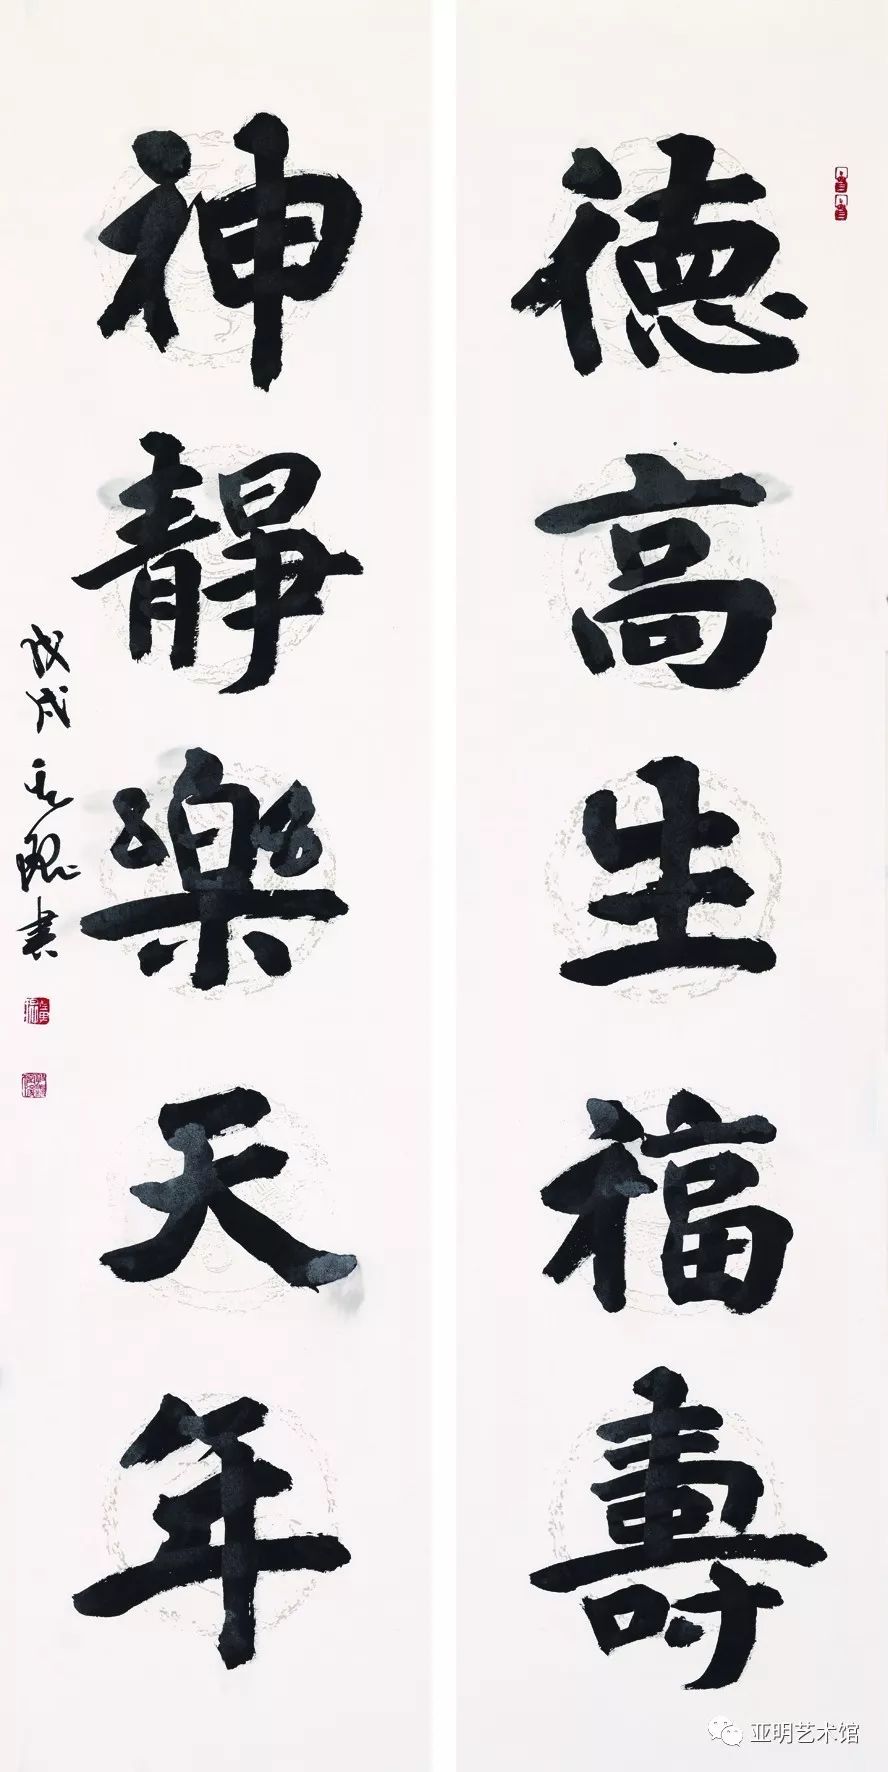 德高生福壽
神靜樂天年
戊戌
書
亚明艺术馆